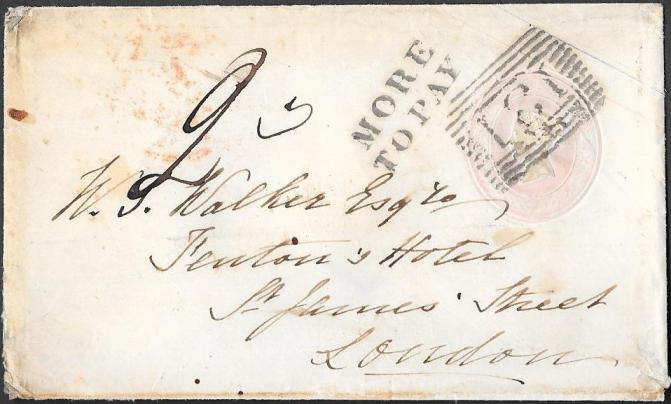 MORE
TO PAY
2
W. S. Walker Esqre
Fenton's Hotel
St. James' Street
London